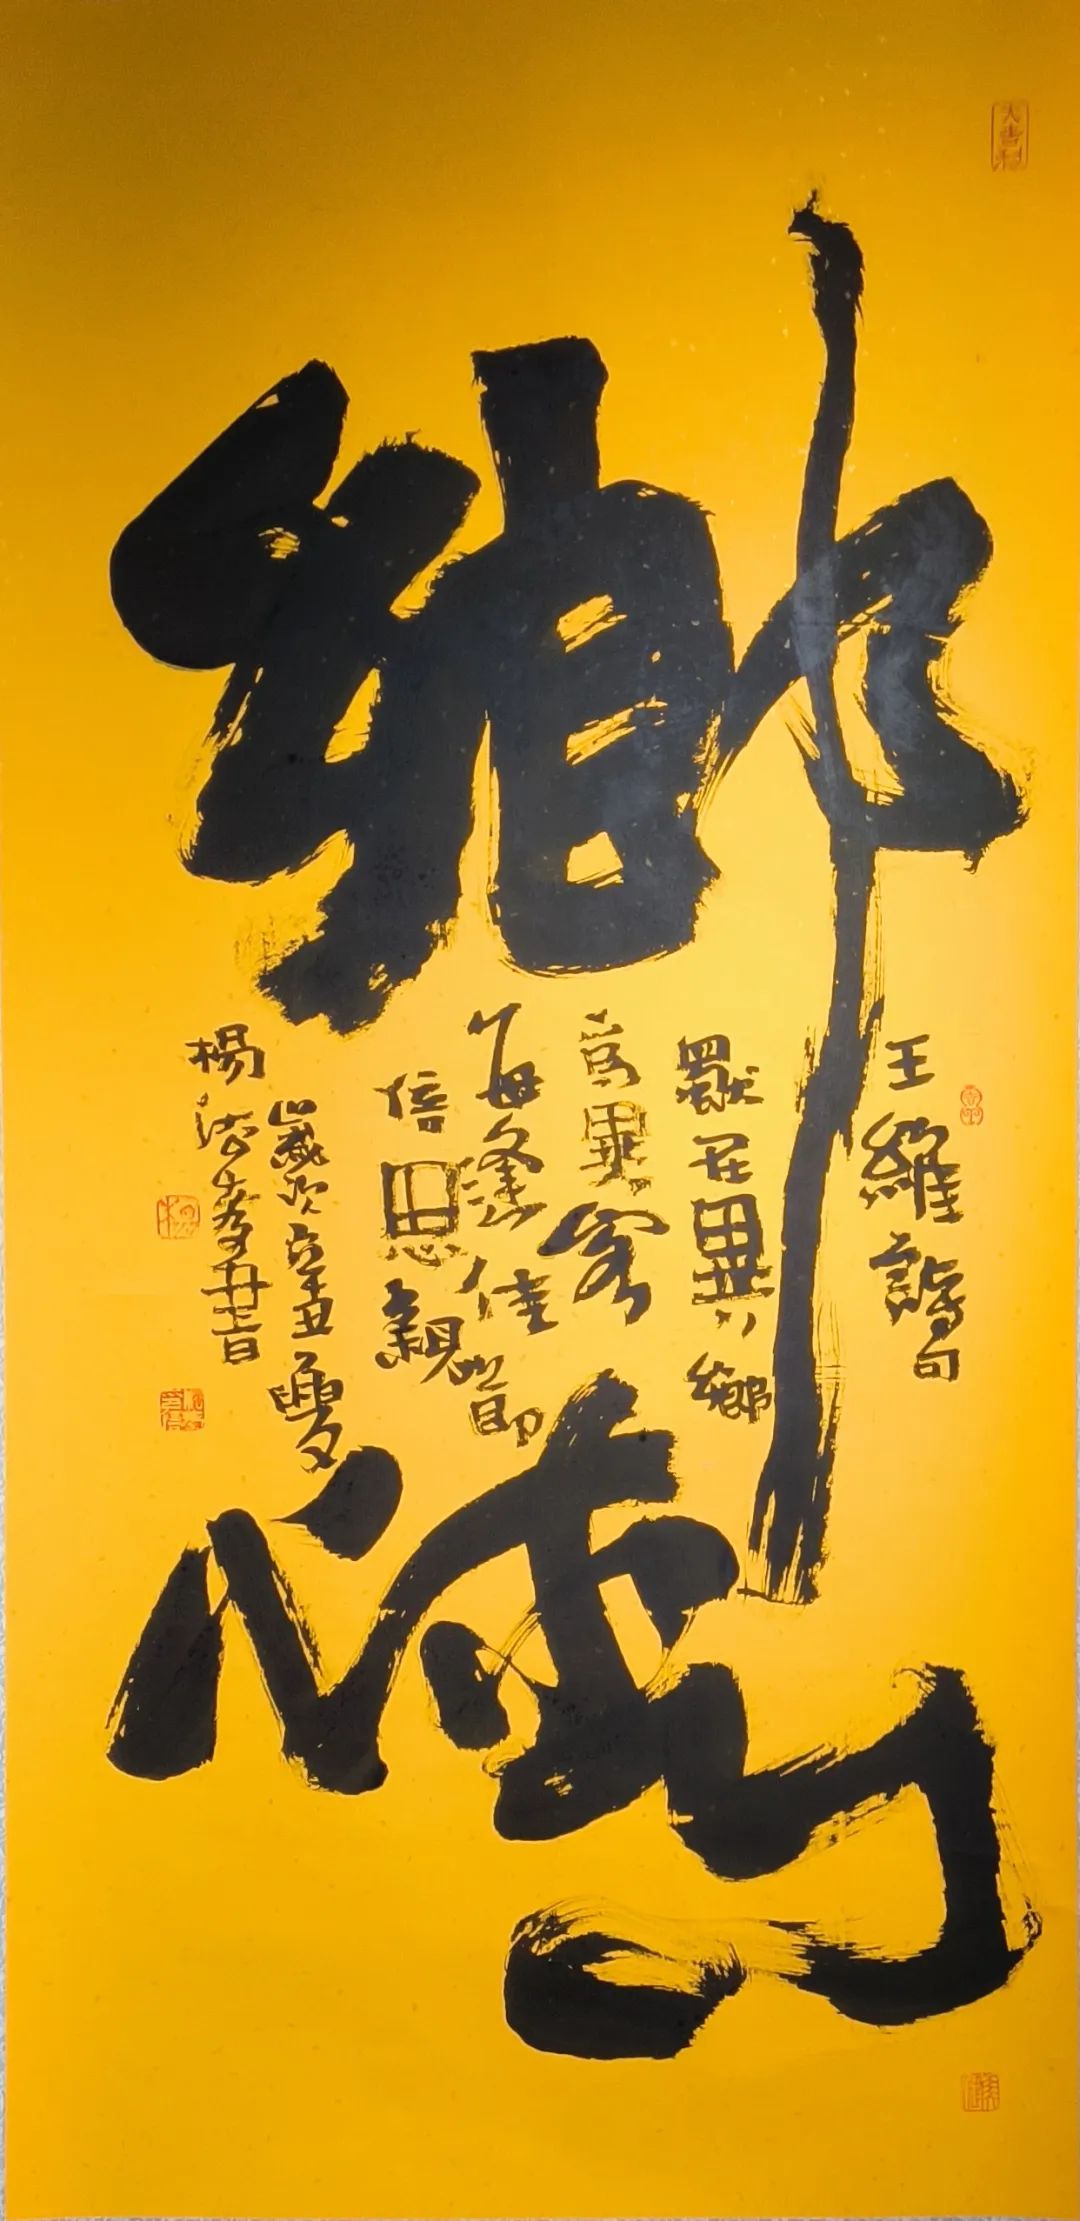 鄉
王維詩句
獨在異鄉
為異客
每逢佳節
倍思親
歲次辛丑夏
楊法孝書